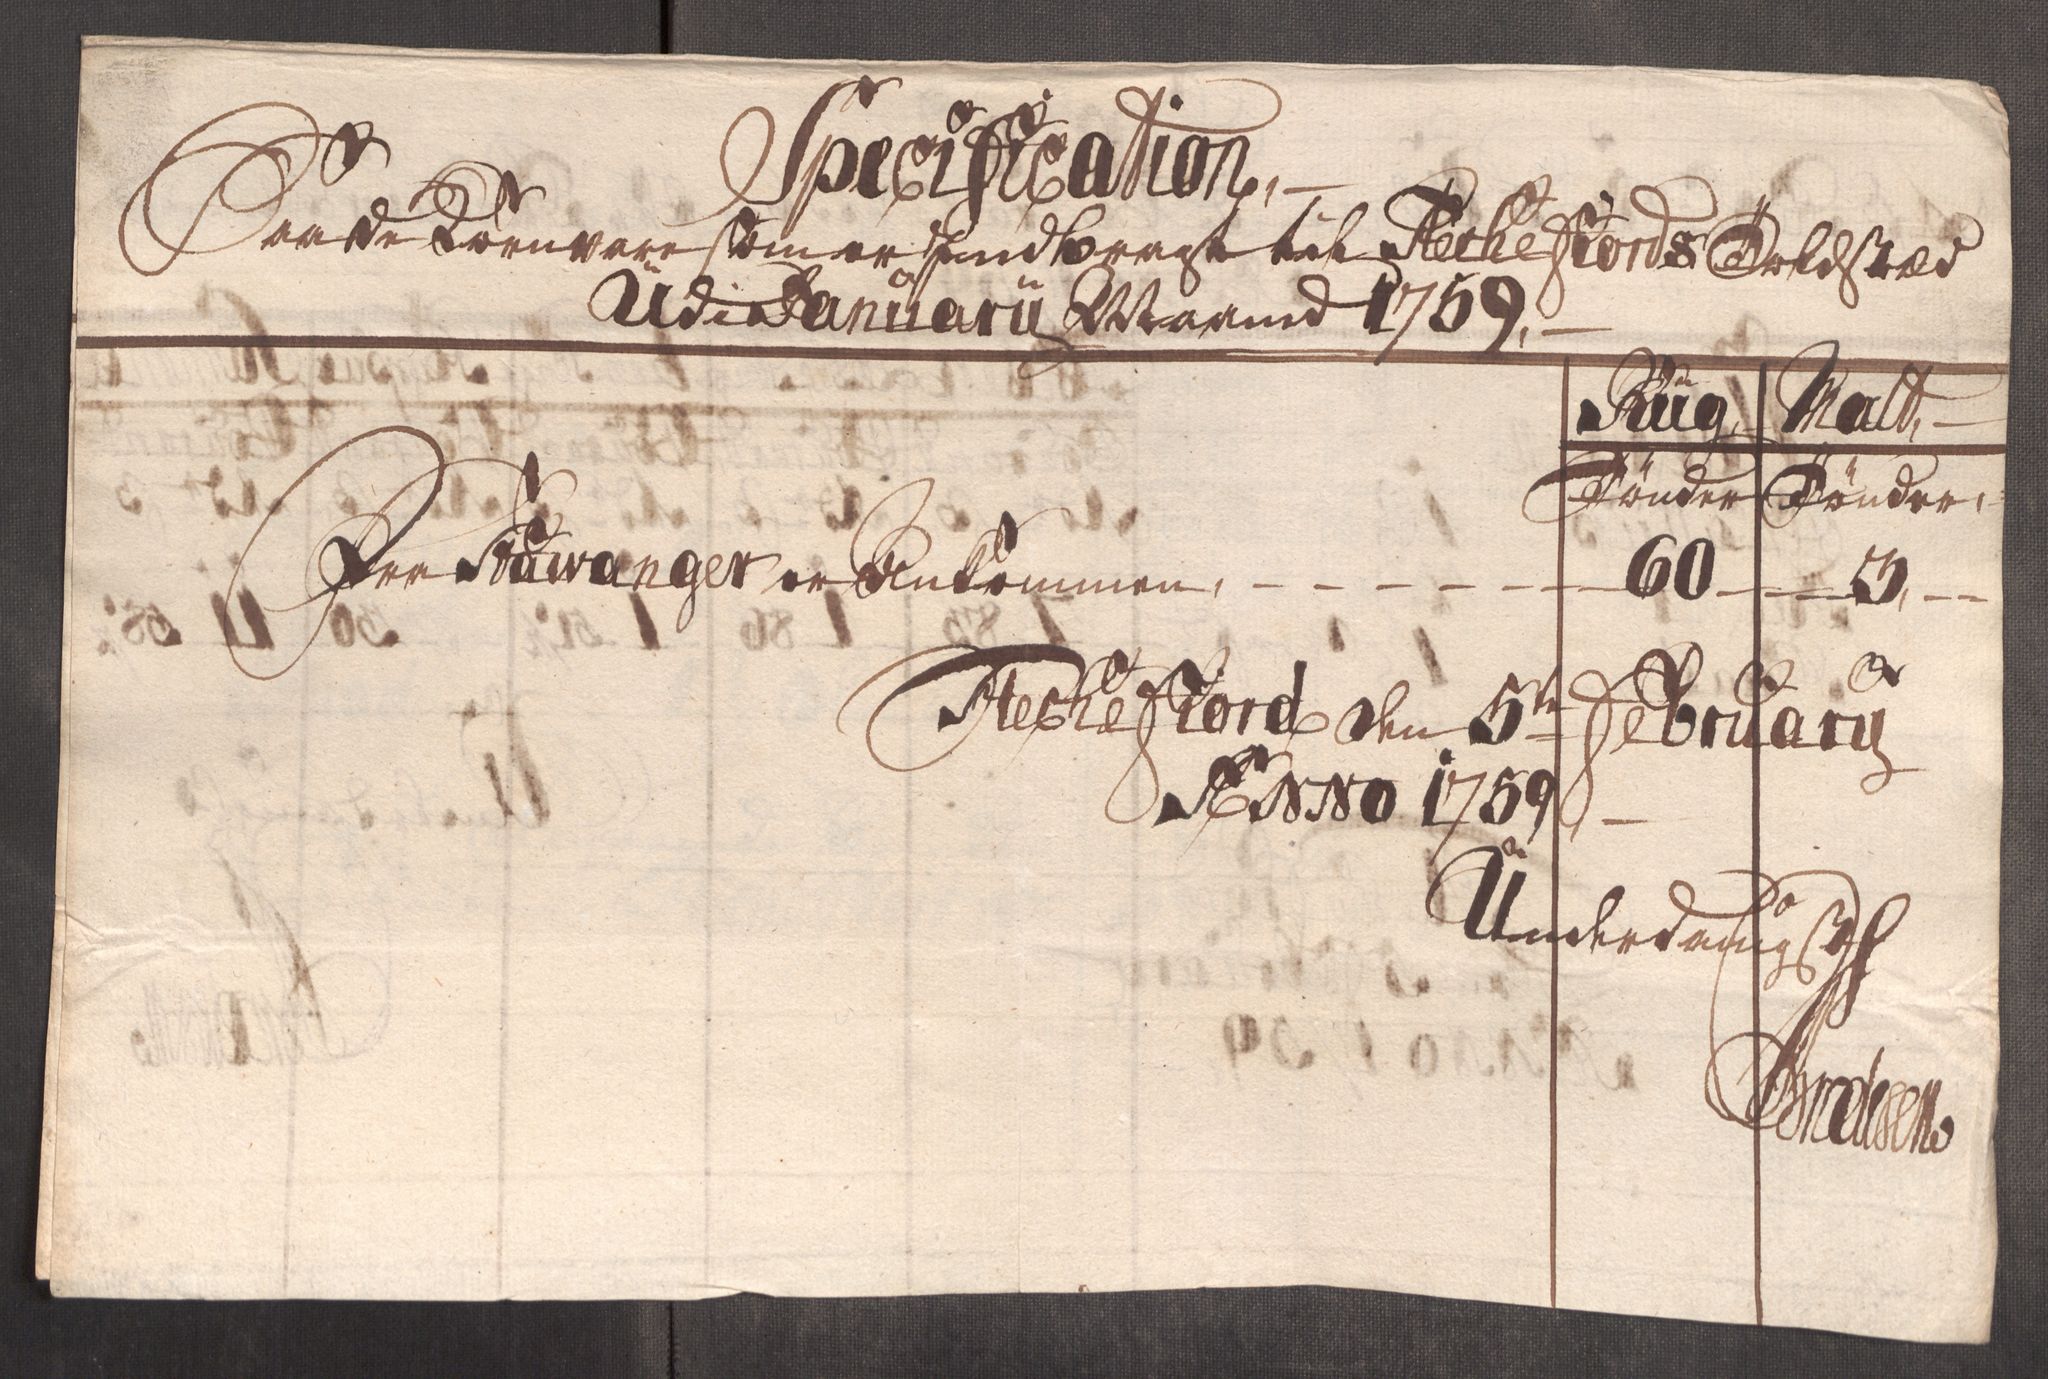 Specification,
Paa de Kornvare som er indbragt til Fleche Fiords Toldstæd
Udi January Maaned 1759,
Rüg, Malt,
Tönder Tönder,
Fra Stawanger er Ankommen, 60 3,
Fleche Fiord den 5te February
ANNO 1759,
Underdanigst